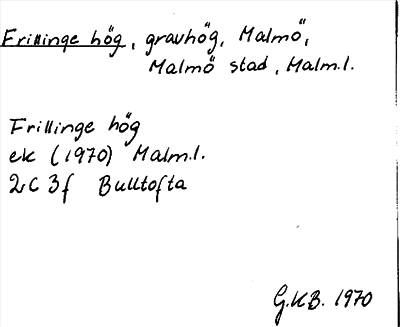 Frillinge hög, gravhög, Malmö,
Malmö stad, Malm.l.
Frillinge hög
ek (1970) Malm.l.
2C 3f Bulltofta
G.KB. 1970